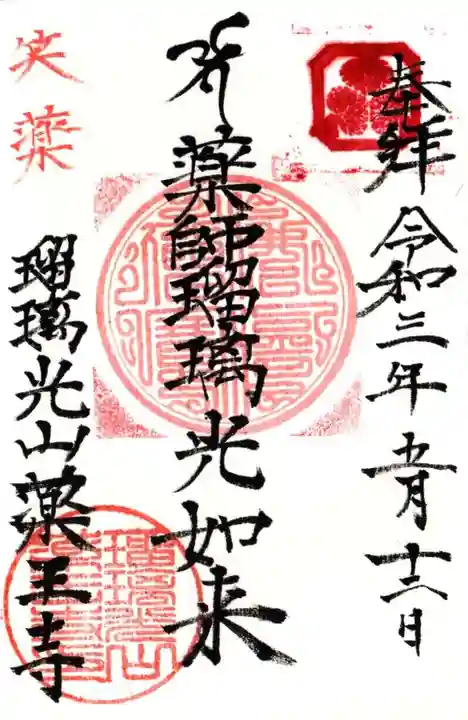 奉拝 令和三年 五月 十三日
薬師瑠璃光如来
瑠璃光山薬王寺
笑薬